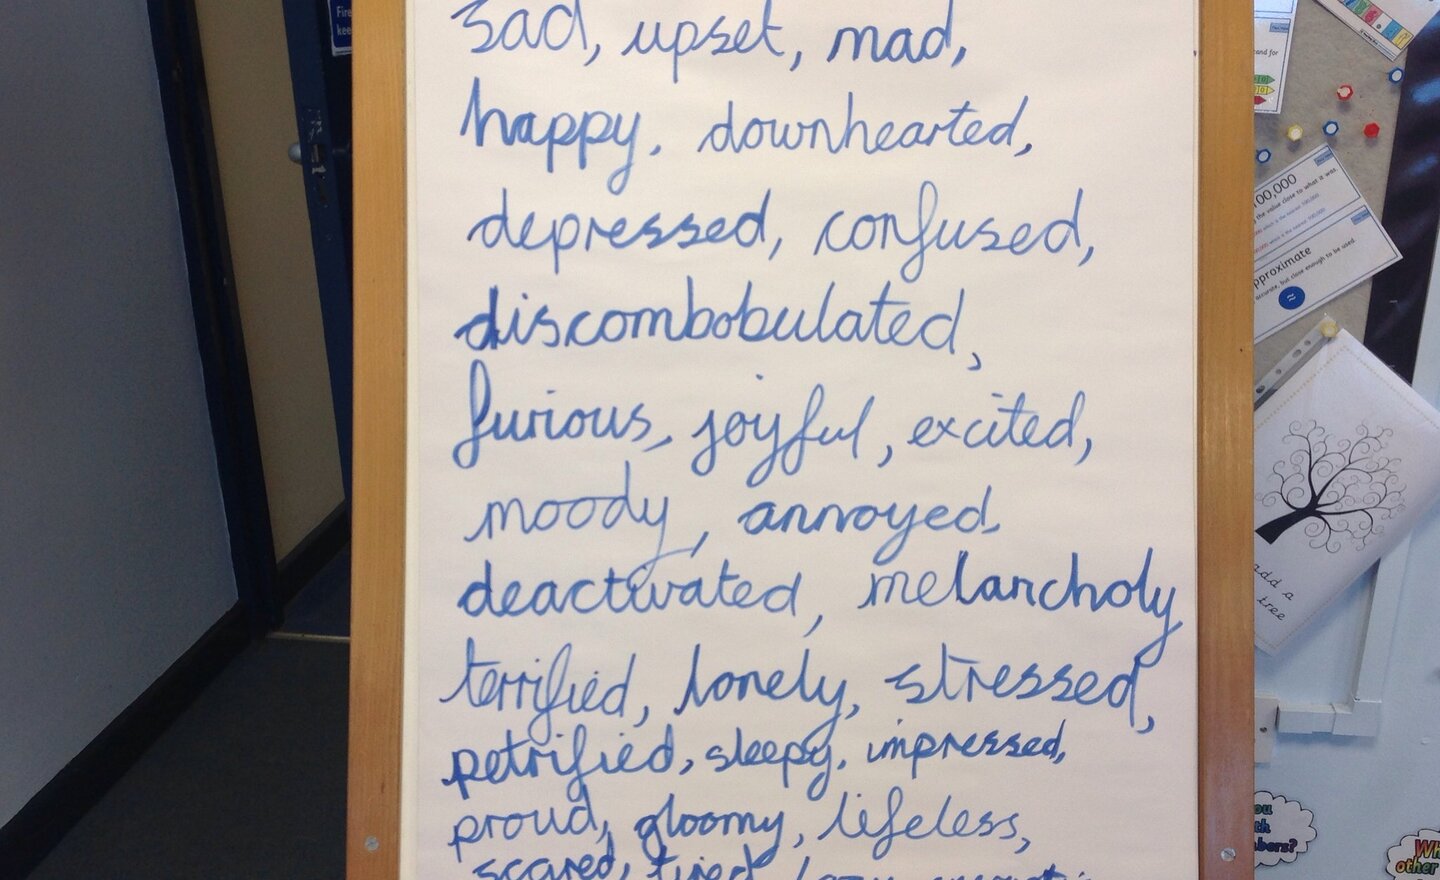 sad, upset, mad,
happy, downhearted,
depressed, confused,
discombobulated,
furious, joyful, excited,
moody, annoyed
deactivated, melancholy
terrified, lonely, stressed,
petrified, sleepy, impressed,
proud, gloomy, lifeless,
scared, tired
Fire
100,000
the value close to what it was.
approximate
accurate, but close enough to be used.
add a
tree